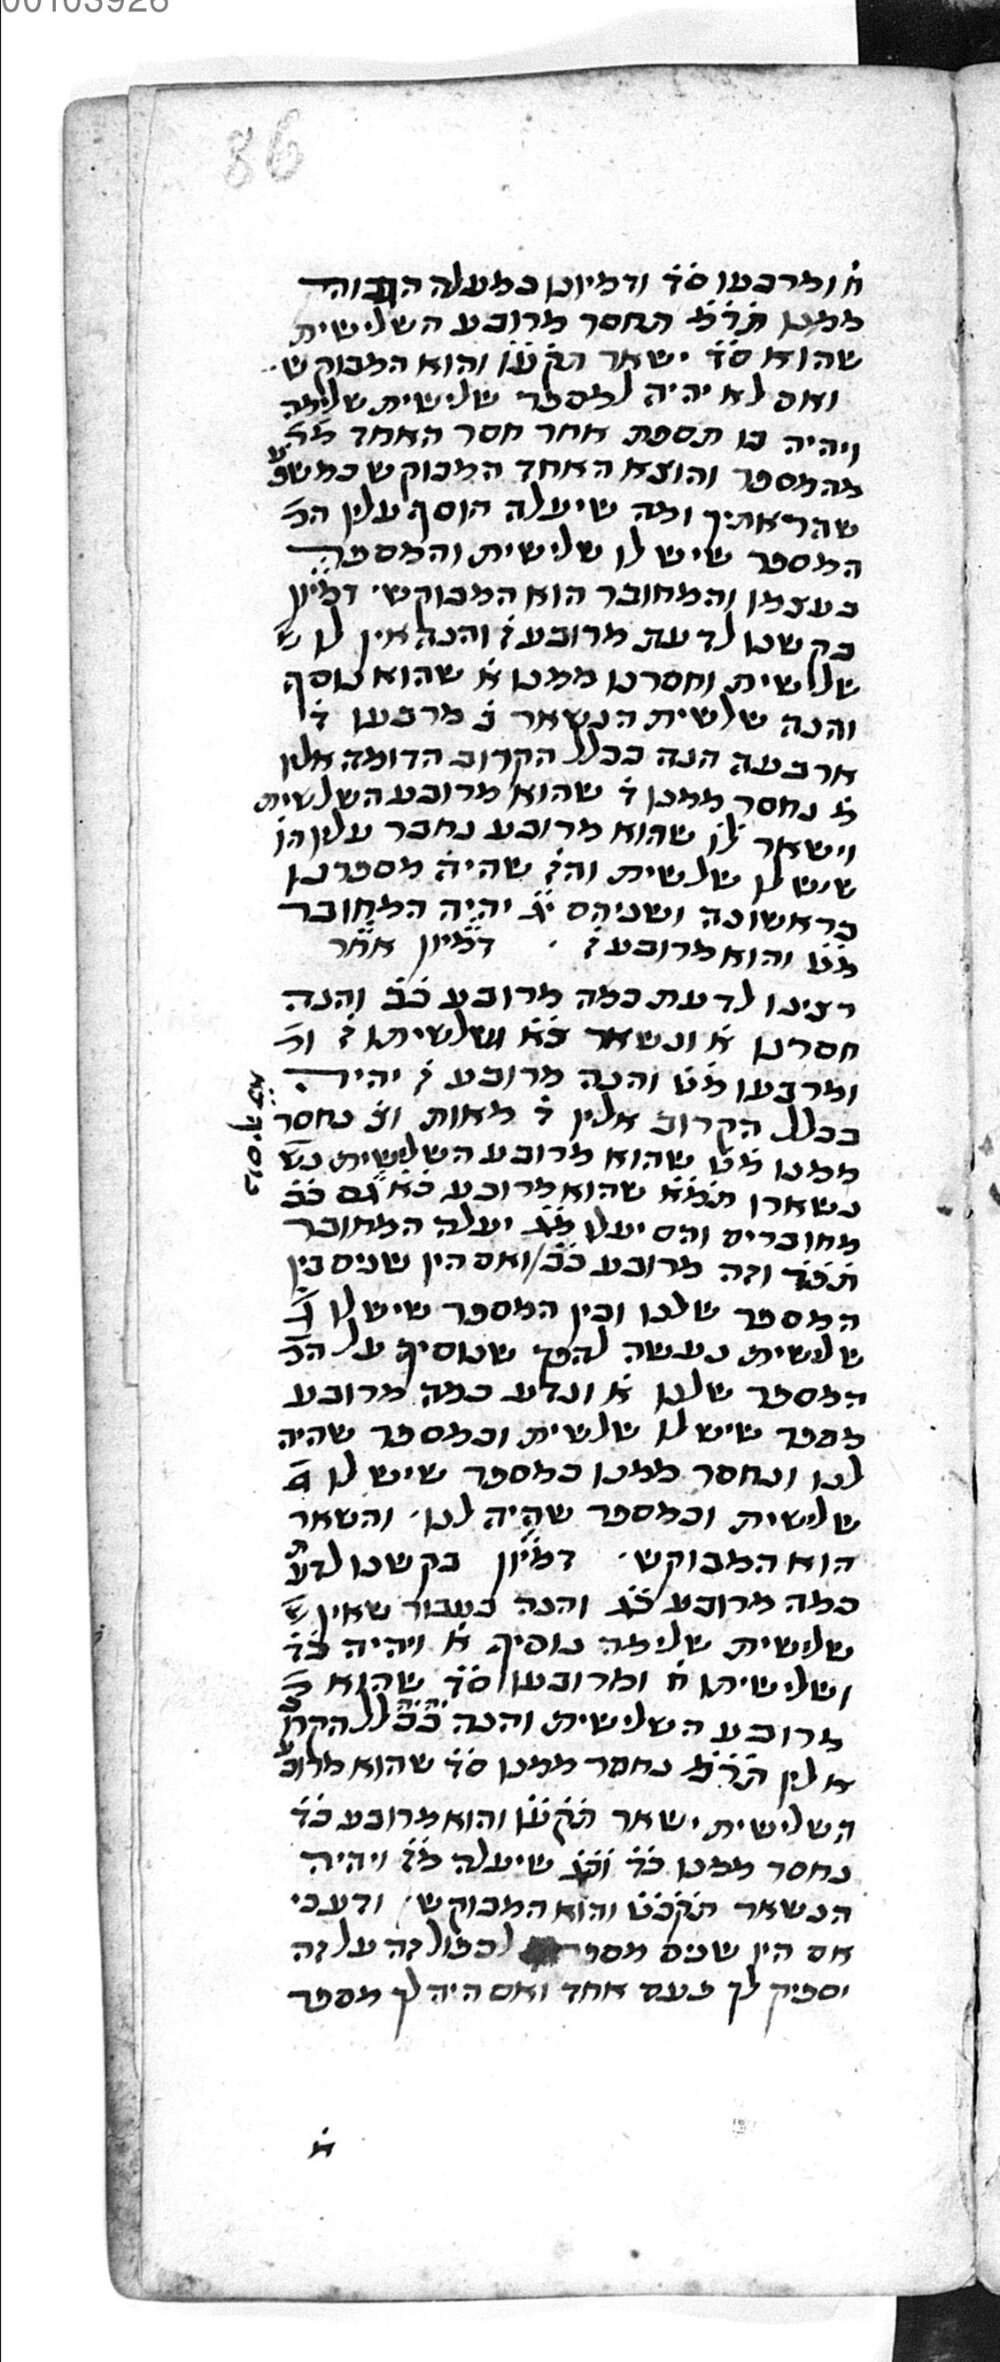 00103926
86
ח̇ ומרבעו ס̇ד̇ ודמיונו במעלה הגבוהה
ממנו ת̇ר̇מ̇ תחסר מרובע השלישית
שהוא ס̇ד̇ ישאר תק̇ע̇ו̇ והוא המבוקש
ואם לא יהיה למספר שלישית שלימה
ויהיה בו תספת אחד חסר האחד
מהמספר והוצא האחד המבוקש כמשפט
שהראתיך ומה שיעלה הוסף עליו המ
המספר שיש לו שלישית והמספר
בעצמו והמחובר הוא המבוקש׳ דמיון
בקשנו לדעת מרובע ז̇ והנה אין לו ש
שלישית וחסרנו ממנו א̇ שהוא נוסף
והנה שלשית הנשאר ב̇ מרבעו ד̇
ארבעה הנה בכלל הקרוב הדומה אליו
מ̇ נחסר ממנו ד̇ שהוא מרובע השלשית
וישאר ל̇ו̇ שהוא מרובע נחבר עליו הו̇
שיש לו שלשית והז̇ שהיה מספרנו
בראשונה ושניהם י̇ג̇ יהיה המחובר
מ̇ט̇ והוא מרובע ז̇ ׳ דמיון אחר
רצינו לדעת כמה מרובע כ̇ב̇ והנה
חסרנו א̇ ונשאר כ̇א̇ ושלשיתו ז̇ ומ
ומרבעו מ̇ט̇ והנה מרובע ז̇ יהיה
בכלל הקרוב אליו ד̇ מאות וצ̇ נחסר
ממנו מ̇ט̇ שהוא מרובע השלישית נש
נשארו ת̇מ̇א̇ שהוא מרובע כ̇א̇ גם כ̇ב̇
מחוברים והם יעלו מ̇ג̇ יעלה המחובר
ת̇פ̇ד̇ וזה מרובע כ̇ב̇ / ואם היו שנים בין
המספר שלנו ובין המספר שיש לו
שלשית נעשה להפך שנוסיף על המ
המספר שלנו א̇ ונדע כמה מרובע
מספר שיש לו שלשית ובמספר שהיה
לנו ונחסר ממנו כמספר שיש לו
שלישית וכמספר שהיה לנו׳ והשאר
הוא המבוקש׳ דמיון בקשנו לדעת
כמה מרובע כ̇ג̇ והנה בעבור שאין ש
שלישית שלימה נוסיף א̇ ויהיה כ̇ד̇
ושלישיתו ח̇ ומרובעו ס̇ד̇ שהוא מ
מרובע השלישית והנה יהיה בכלל הקרוב
אליו ת̇ר̇מ̇ נחסר ממנו ס̇ד̇ שהוא מרובע
השלישית ישאר ת̇ק̇ע̇ו̇ והוא מרובע כ̇ד̇
נחסר ממנו כ̇ד̇ וכ̇ג̇ שיעלה מ̇ז̇ ויהיה
הנשאר ת̇ק̇כ̇ט̇ והוא המבוקש׳ ודע כי
אם היו שנים מספר לכפול זה על זה
יספיק לך פעם אחד ואם היה לך מספר
א̇